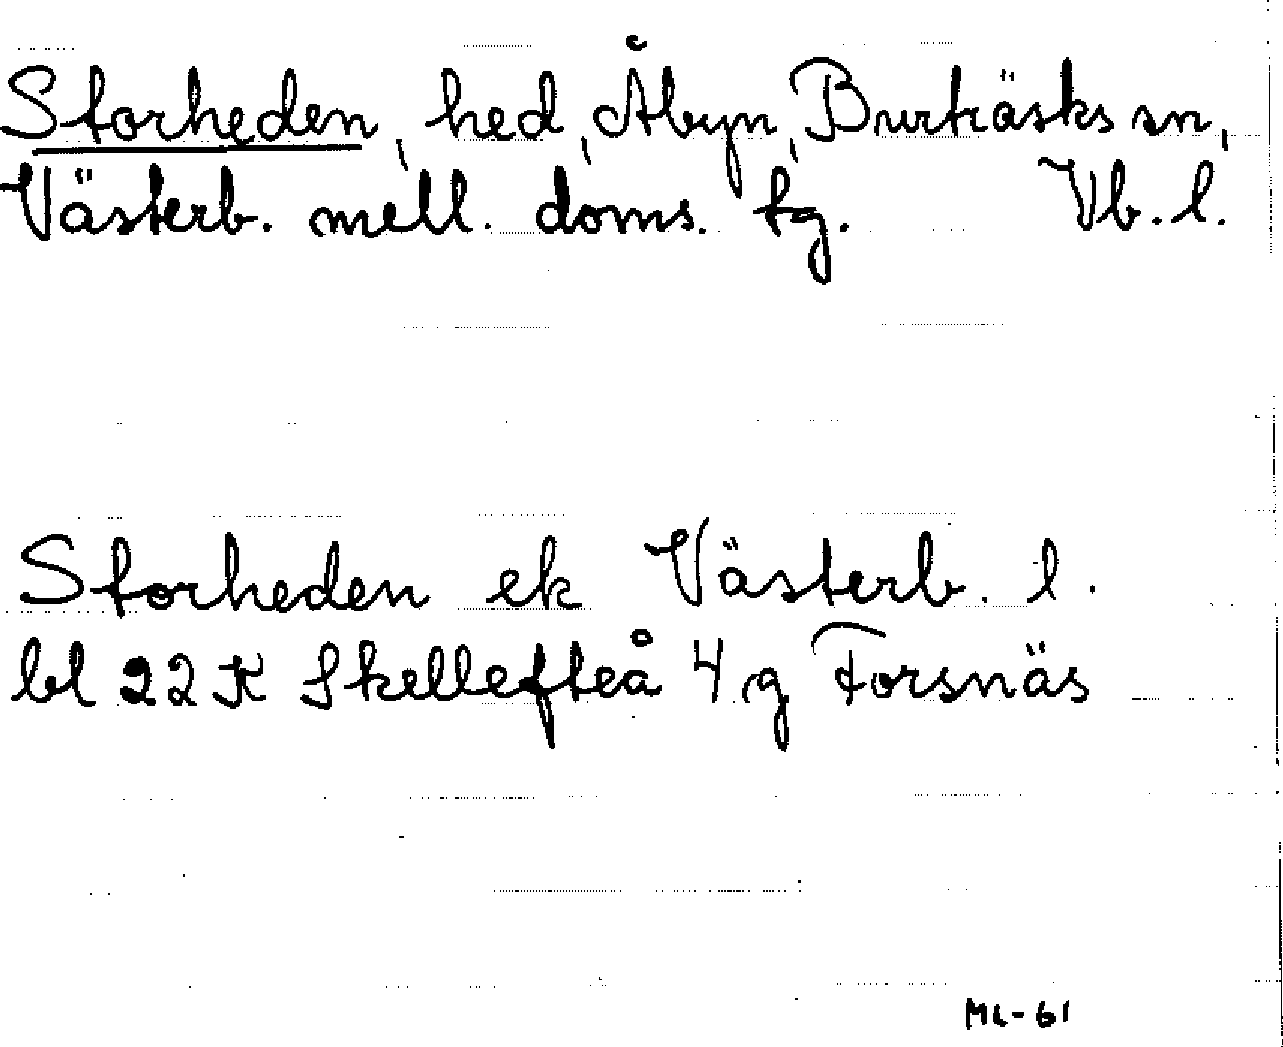 Storheden, hed, Åbyn, Burträsks sn,
Västerb. mell. doms. tg. Vb. l.
Storheden ek Västerb. l.
bl 22 K Skellefteå 4 g Forsnäs
ML-61